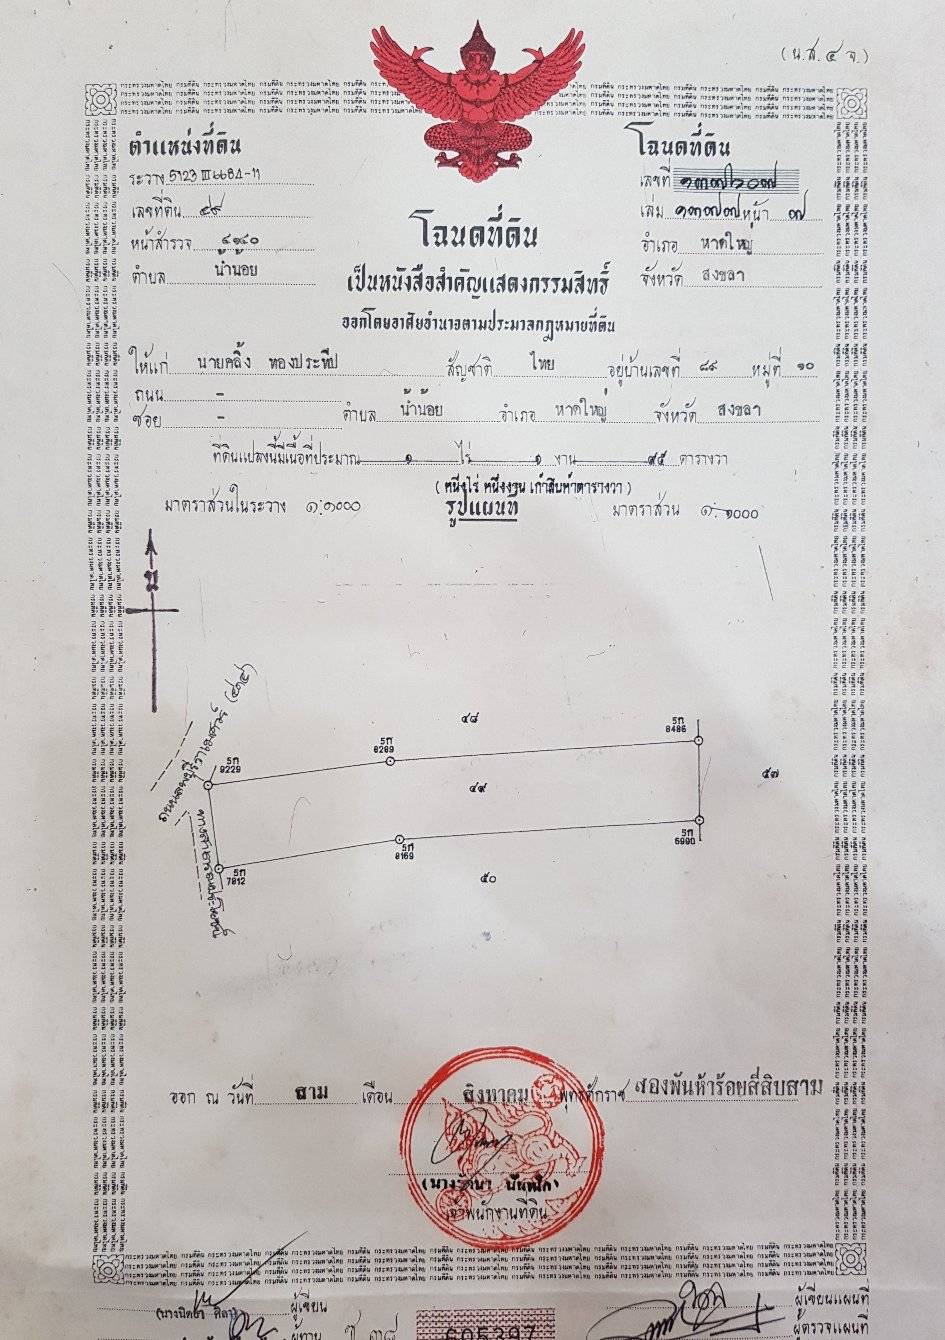 (น.ส.๔ จ.)
ตำแหน่งที่ดิน
ระวาง 5123 III 6684-11
เลขที่ดิน ๔๙
หน้าสำรวจ
ตำบล น้ำน้อย
โฉนดที่ดิน
เลขที่ ๑๓๗๖๐๗
เล่ม ๑๓๗๗ หน้า ๗
อำเภอ หาดใหญ่
จังหวัด สงขลา
โฉนดที่ดิน
เป็นหนังสือสำคัญแสดงกรรมสิทธิ์
ออกโดยอาศัยอำนาจตามประมวลกฎหมายที่ดิน
ให้แก่ นายคลิ้ง ทองประทีป สัญชาติ ไทย อยู่บ้านเลขที่ ๘๙ หมู่ที่ ๑๐
ถนน -
ซอย - ตำบล น้ำน้อย อำเภอ หาดใหญ่ จังหวัด สงขลา
ที่ดินแปลงนี้มีเนื้อที่ประมาณ ๑ ไร่ ๑ งาน ๙๕ ตารางวา
(หนึ่งไร่ หนึ่งงาน เก้าสิบห้าตารางวา)
มาตราส่วนในระวาง ๑:๑๐๐๐ รูปแผนที่ มาตราส่วน ๑:๑๐๐๐
น
๔๘
5ก 8486
5ก 8289
5ก 9229
๕๗
๔๙
5ก 5990
5ก 8169
5ก 7812
๕๐
ออก ณ วันที่ สาม เดือน สิงหาคม พุทธศักราช สองพันห้าร้อยสี่สิบสาม
เจ้าพนักงานที่ดิน
ผู้เขียน
ผู้เขียนแผนที่
ผู้ทาน
605297
ผู้ตรวจแผนที่